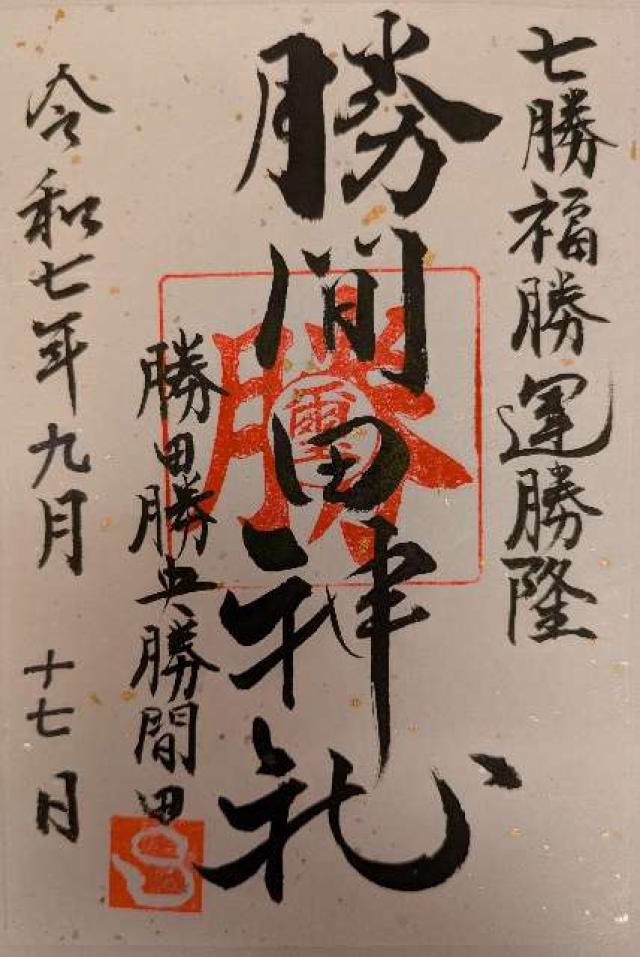 七勝福勝運勝隆
勝間田神社
勝
璽
勝田勝央勝間田
令和七年九月 十七日